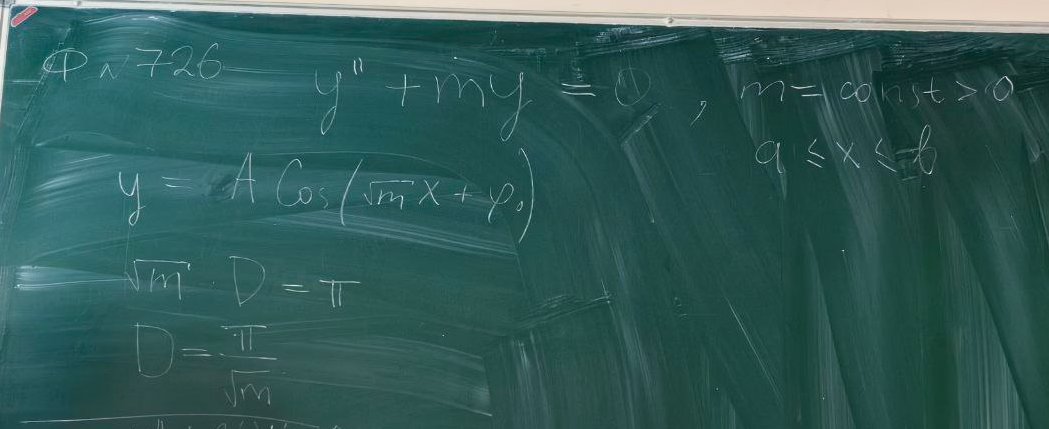 Ф №726
y'' + my = 0, m = const > 0
a ≤ x ≤ b
y = A Cos(√m x + φ₀)
√m D = π
D = π/√m